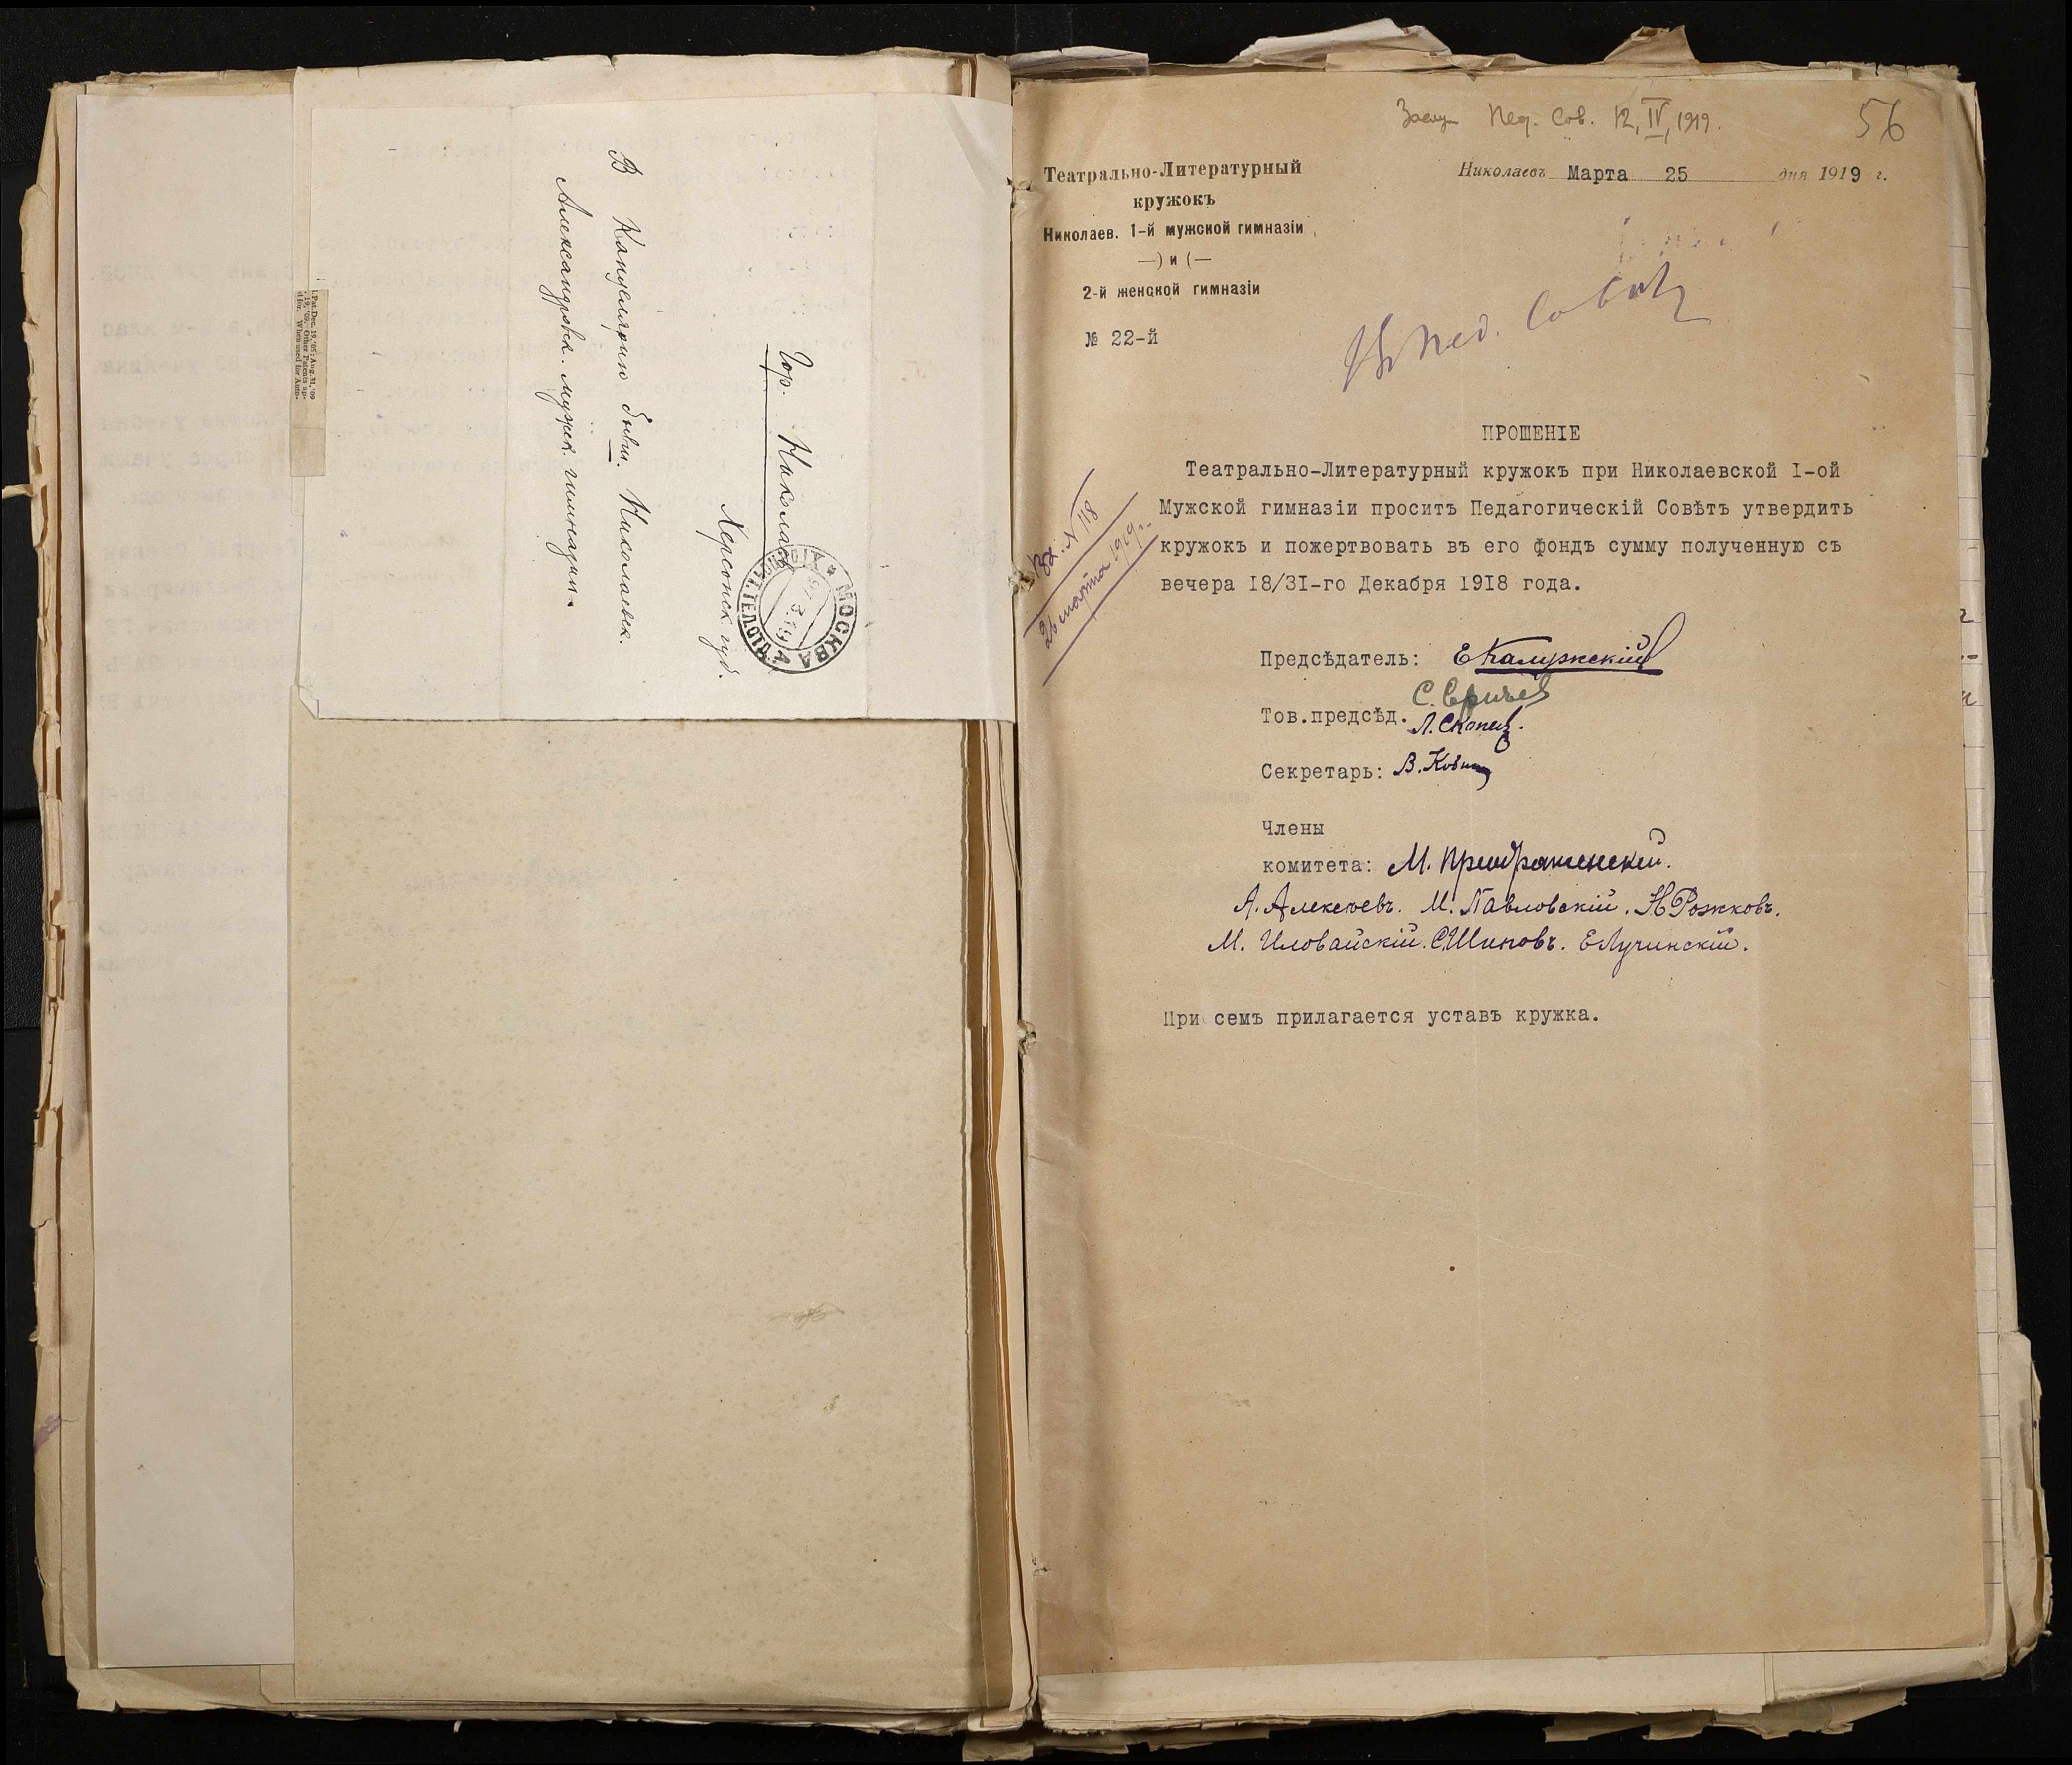 Гор. Николаевъ
Херсонск. губ.
В Канцелярию бывш. Николаевск.
Александровск. мужск. гимназии.
МОСКВА
Pat. Dec. 19, '05; Aug. 31, '09
When used for Auto-
Засл. Пед. Сов. 12, IV, 1919.
56
Театрально-Литературный
кружокъ
Николаев. 1-й мужской гимназіи
—) и (—
2-й женской гимназіи
№ 22-й
Николаевъ Марта 25 дня 1919 г.
Въ Пед. Советъ
Вх. N 118
26 марта 1919 г.
ПРОШЕНІЕ
Театрально-Литературный кружокъ при Николаевской I-ой
Мужской гимназіи проситъ Педагогическій Совѣтъ утвердить
кружокъ и пожертвовать въ его фондъ сумму полученную съ
вечера I8/3I-го Декабря I9I8 года.
Предсѣдатель: Е Калужскій
Тов.предсѣд.
Секретарь:
Члены
комитета: М. Преображенскій.
А. Алексѣевъ. М. Павловскій. Н Рожковъ.
М. Иловайскій. С Шиповъ. Е Лучинскій.
При семъ прилагается уставъ кружка.